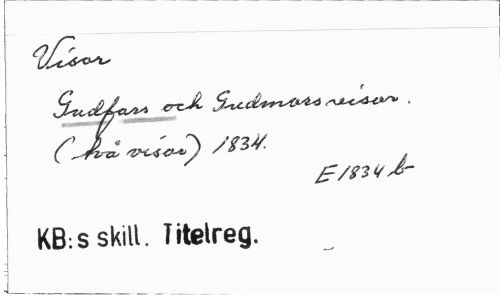 Visor
Gudfars och Gudmorsvisor.
(två visor) 1834.
E 1834 b
KB:s skill. Titelreg.